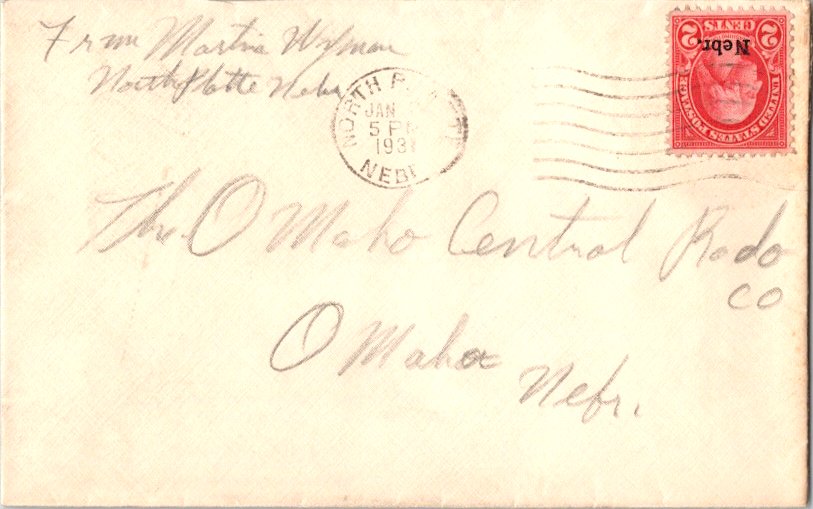 From Martin Wyman
North Platte Nebr
NORTH P
JAN
5 PM
193
NEBR
2 CENTS 2
Nebr.
UNITED STATES POSTAGE
The Omaho Central Rado
co
Omaha
Nebr.